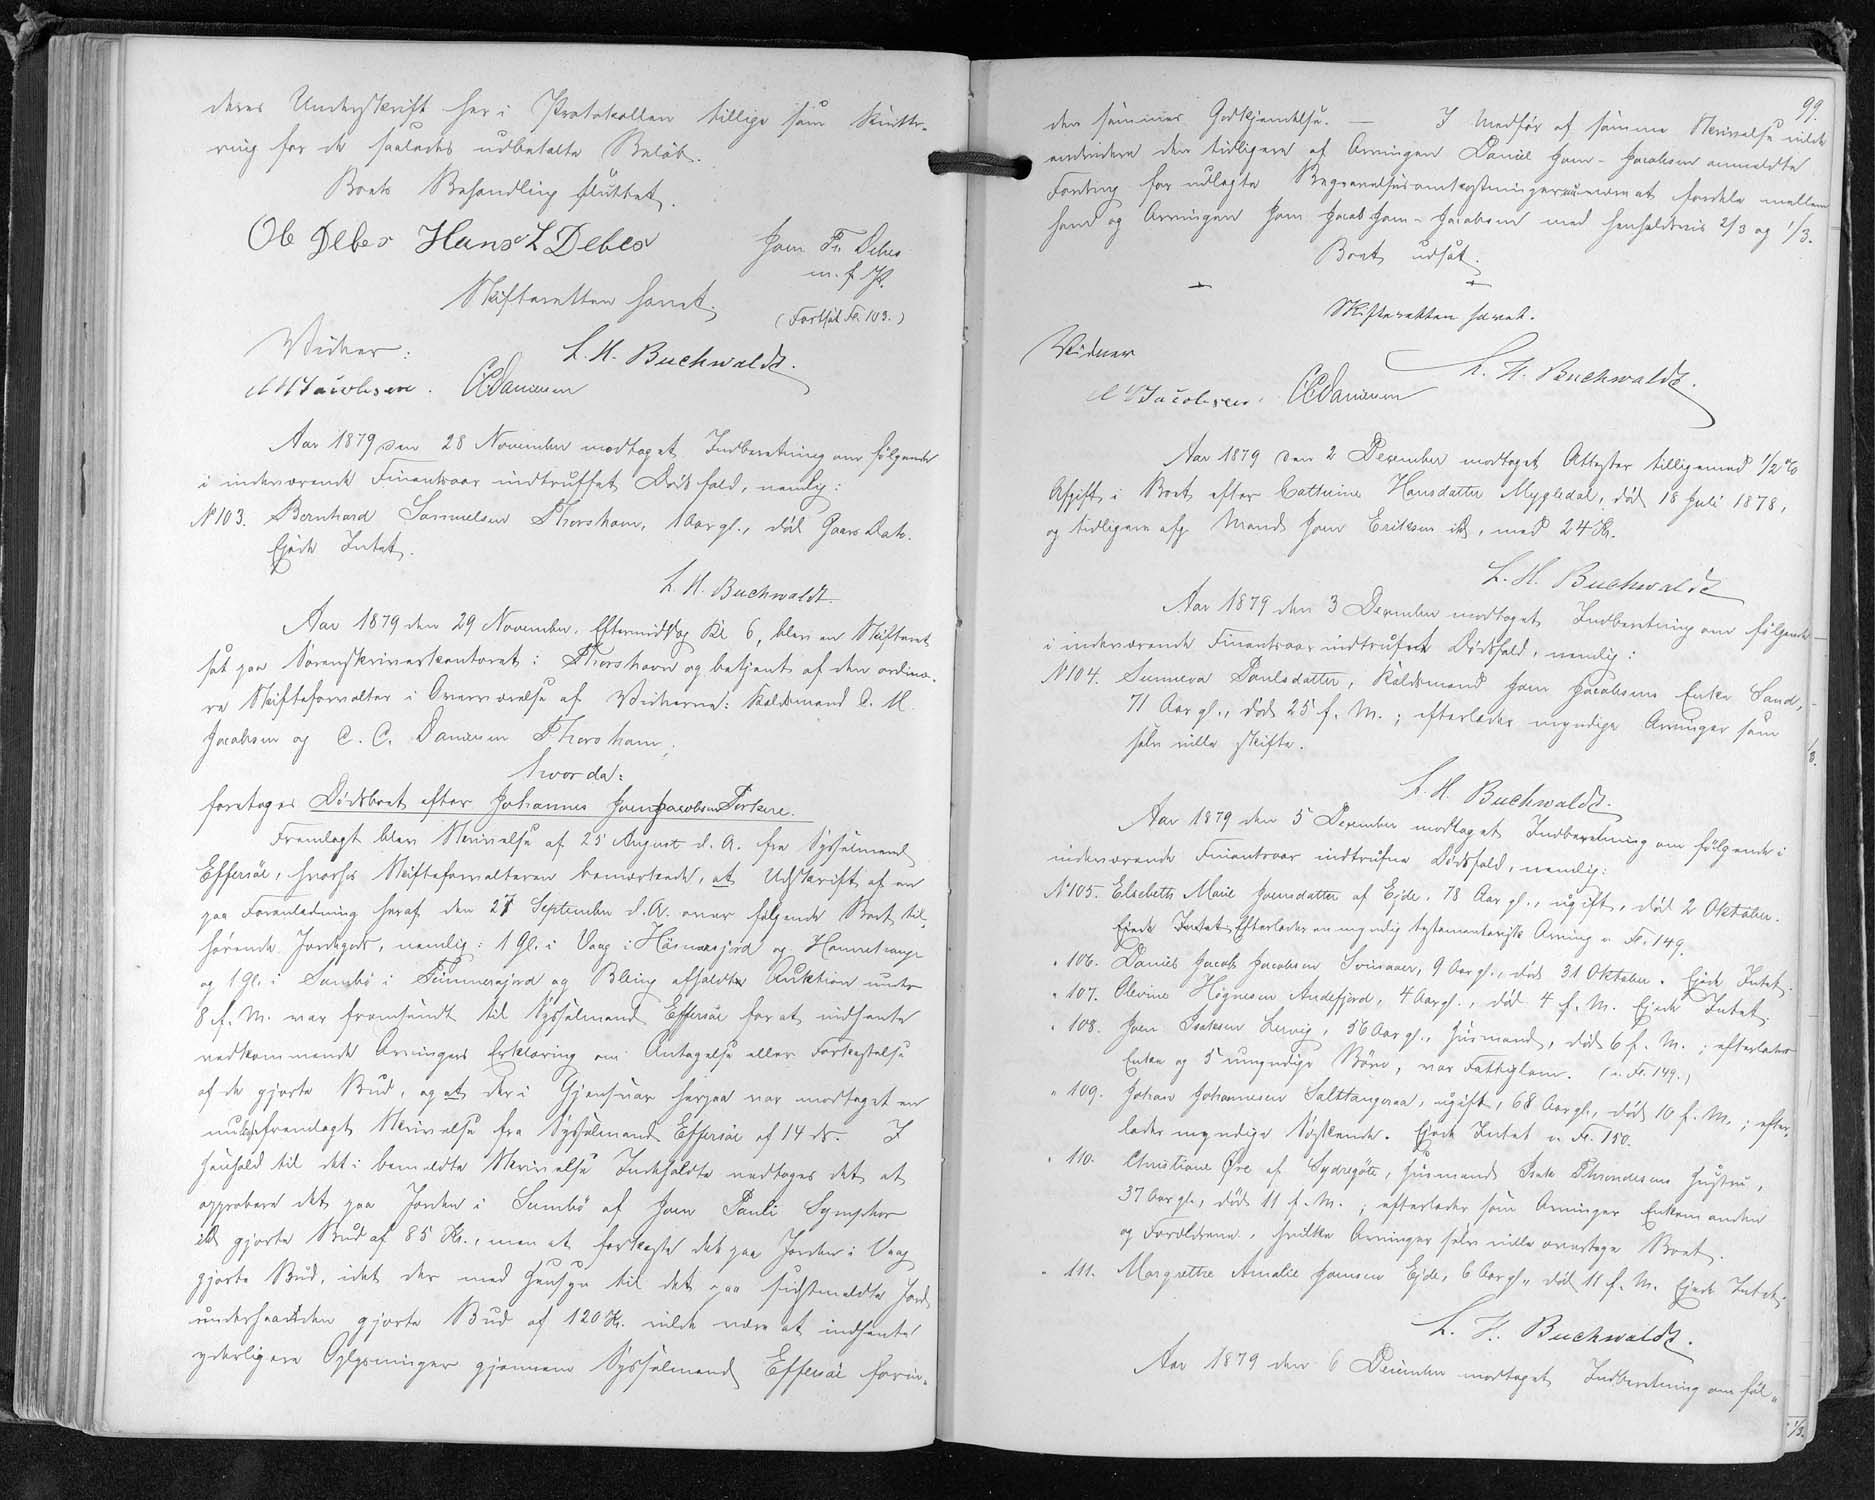 deres Underskrift her i Protokollen tillige som Kvitte-
ring for de saaledes udbetalte Beløb.
Boets Behandling sluttet.
Ole Debes Hans L Debes Joen Fr. Debes
m. f. P.
Skifteretten hævet.
(Fortsat Fo. 103.)
Vidner:
L. H. Buchwaldt.
Jacobsen. CCDanielsen
Aar 1879 den 28 November modtaget Indberetning om følgende
i indeværende Finantsaar indtruffet Dødsfald, nemlig:
N 103. Bernhard Samuelsen Thorshavn, 1 Aar gl., død Gaars Dato.
Ejede Intet.
L. H. Buchwaldt.
Aar 1879 den 29 November, Eftermiddag Kl 6, blev en Skifteret
sat paa Sorenskriverkontoret i Thorshavn og betjent af den ordinæ-
re Skifteforvalter i Overværelse af Vidnerne: Kaldsmand C. M.
Jacobsen og C. C. Danielsen Thorshavn;
hvorda:
foretoges Dødsboet efter Johannes Joen Jacobsen Porkere.
Fremlagt blev Skrivelse af 25 August d. A. fra Sysselmand
Effersøe, hvorhos Skifteforvalteren bemærkede, at Udskrift af en
paa Foranledning heraf den 27 September d. A. over følgende Boet til-
hørende Jordegods, nemlig: 1 Gl. i Vaag i og
og 1 Gl. i Sumbø i og afholdte Auktion under
8 f. M. var fremsendt til Sysselmand Effersøe for at indhente
vedkommende Arvingers Erklæring om Antagelse eller Forkastelse
af de gjorte Bud, og at der i Gjensvar herpaa var modtaget en
nu fremlagt Skrivelse fra Sysselmand Effersøe af 14 ds. I
Henhold til det i bemeldte Skrivelse Indeholdte vedtoges det at
approbere det paa Jorden i Sumbø af Joen Pauli
gjorte Bud af 85 Kr., men at forkaste det paa Jorden i Vaag
gjorte Bud, idet der med Hensyn til det paa sidstmeldte Jord
underhaanden gjorte Bud af 120 Kr. vilde være at indhente
yderligere Oplysninger gjennem Sysselmand Effersøe forin-
99.
den sammes Godkjendelse. — I Medfør af samme Skrivelse vilde
endvidere den tidligere af Arvingen Daniel Joen-Jacobsen anmeldte
Fordring for udlagte Begravelsesomkostninger være at fordele mellem
ham og Arvingen Joen Jacob Joen-Jacobsen med henholdsvis 2/3 og 1/3.
Boet udsat.
Skifteretten hævet.
Vidner
L. H. Buchwaldt.
Jacobsen. CCDanielsen
Aar 1879 den 2 December modtaget Attester tilligemed 1/2 %
Afgift i Boet efter Cathrine Hansdatter Mygledal, død 18 Juli 1878,
og tidligere afg. Mand Joen Eriksen , med 24 Kr.
L. H. Buchwaldt
Aar 1879 den 3 December modtaget Indberetning om følgende
i indeværende Finantsaar indtrufne Dødsfald, nemlig:
N 104. Sunneva Poulsdatter, Kaldsmand Joen Jacobsens Enke Sand,
71 Aar gl., død 25 f. M.; efterlader myndige Arvinger som
selv ville skifte.
L. H. Buchwaldt.
Aar 1879 den 5 December modtaget Indberetning om følgende i
indeværende Finantsaar indtrufne Dødsfald, nemlig:
N 105. Elsebeth Marie Joensdatter af Ejde, 78 Aar gl., ugift, død 2 Oktober.
Ejede Intet Efterlader en myndig testamentarisk Arving v. Fo. 149.
" 106. Daniel Jacob Jacobsen Svinaaer, 9 Aar gl., død 31 Oktober. Ejede Intet.
" 107. Olevine Høgnesen Andefjord, 4 Aar gl., død 4 f. M. Ejede Intet.
" 108. Joen Isaksen Lervig, 56 Aar gl., Husmand, død 6 f. M.; efterlader
Enke og 5 umyndige Børn, var Fattiglem. (v. Fo. 149.)
" 109. Johan Johannesen Salttangeraa, ugift, 68 Aar gl., død 10 f. M.; efter-
lader myndige Søskende. Ejede Intet v. Fo. 150.
" 110. Christiane Øre af Sydregøte, Husmand Isak Throndesens Hustru,
37 Aar gl., død 11 f. M.; efterlader som Arvinger Enkemanden
og Forældrene, hvilke Arvinger selv ville overtage Boet.
" 111. Margrethe Amalie Joensen Ejde, 6 Aar gl., død 11 f. M. Ejede Intet.
L. H. Buchwaldt.
Aar 1879 den 6 December modtaget Indberetning om føl-